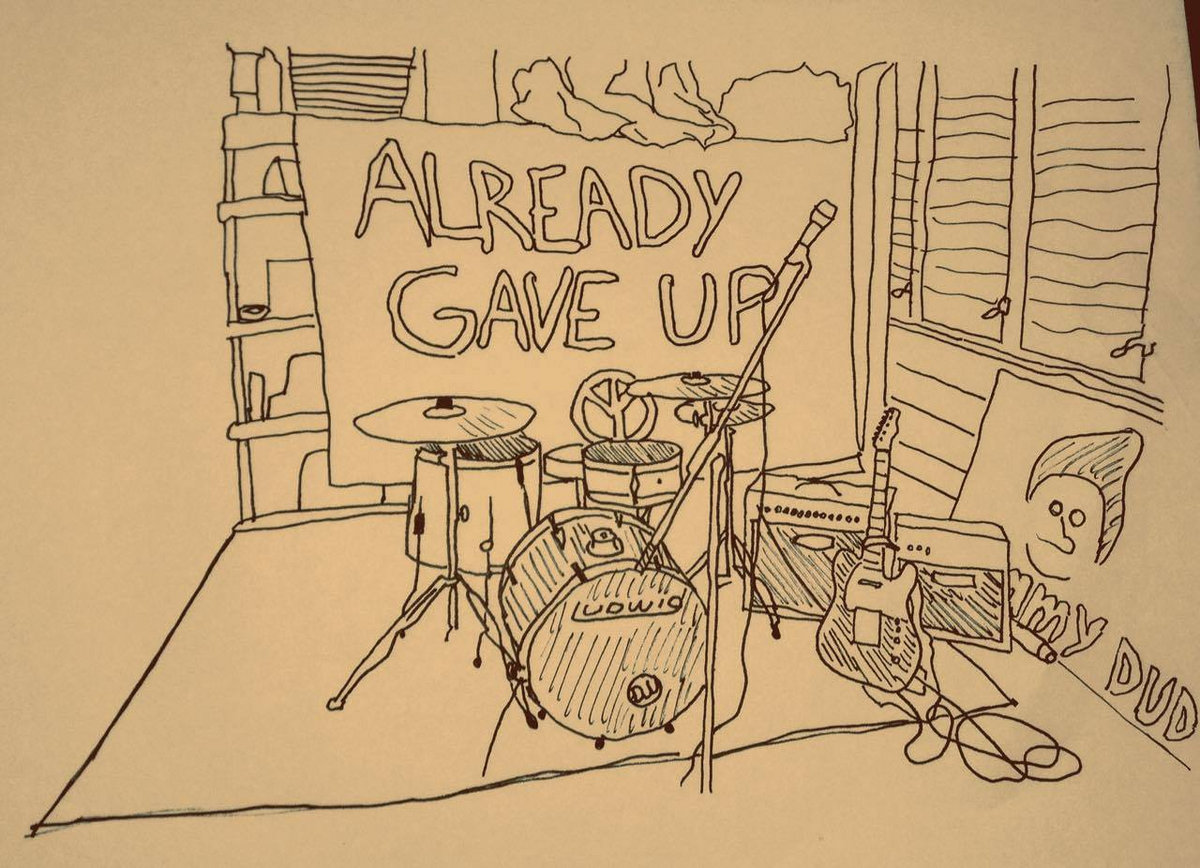 ALREADY
GAVE UP
LUDWIG
MMY DUD